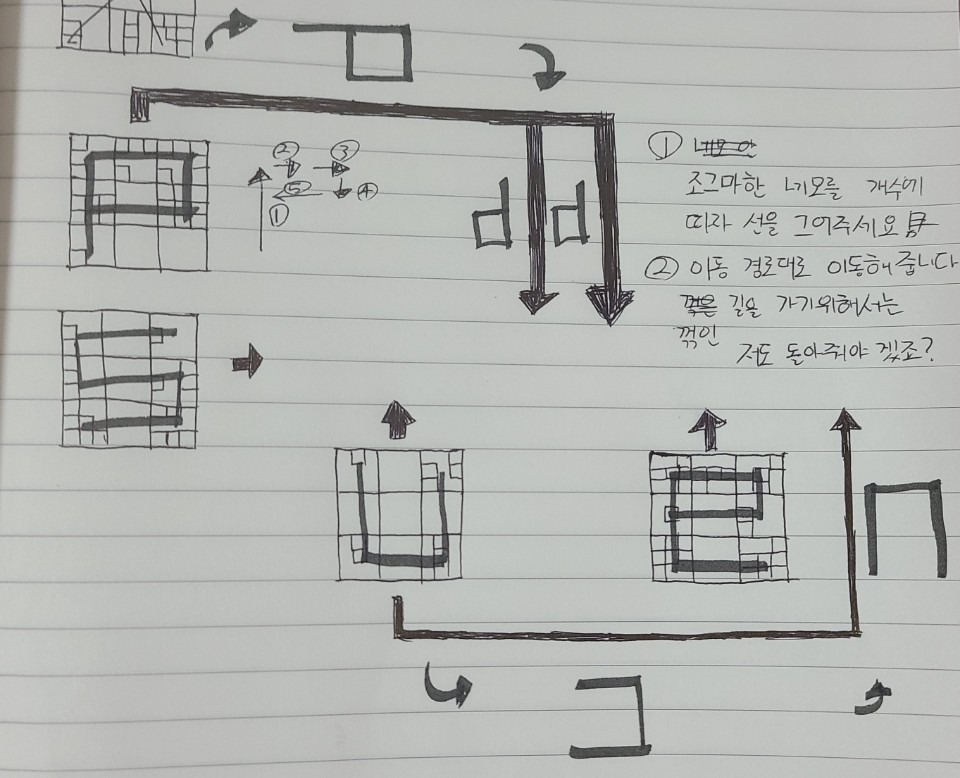 ② ③
⑤ ④
①
① 네모 안
조그마한 네모를 개수에
따라 선을 그어주세요
② 이동 경로대로 이동해 줍니다
꺾은 길을 가기위해서는
꺾인
저도 돌아줘야 겠죠?